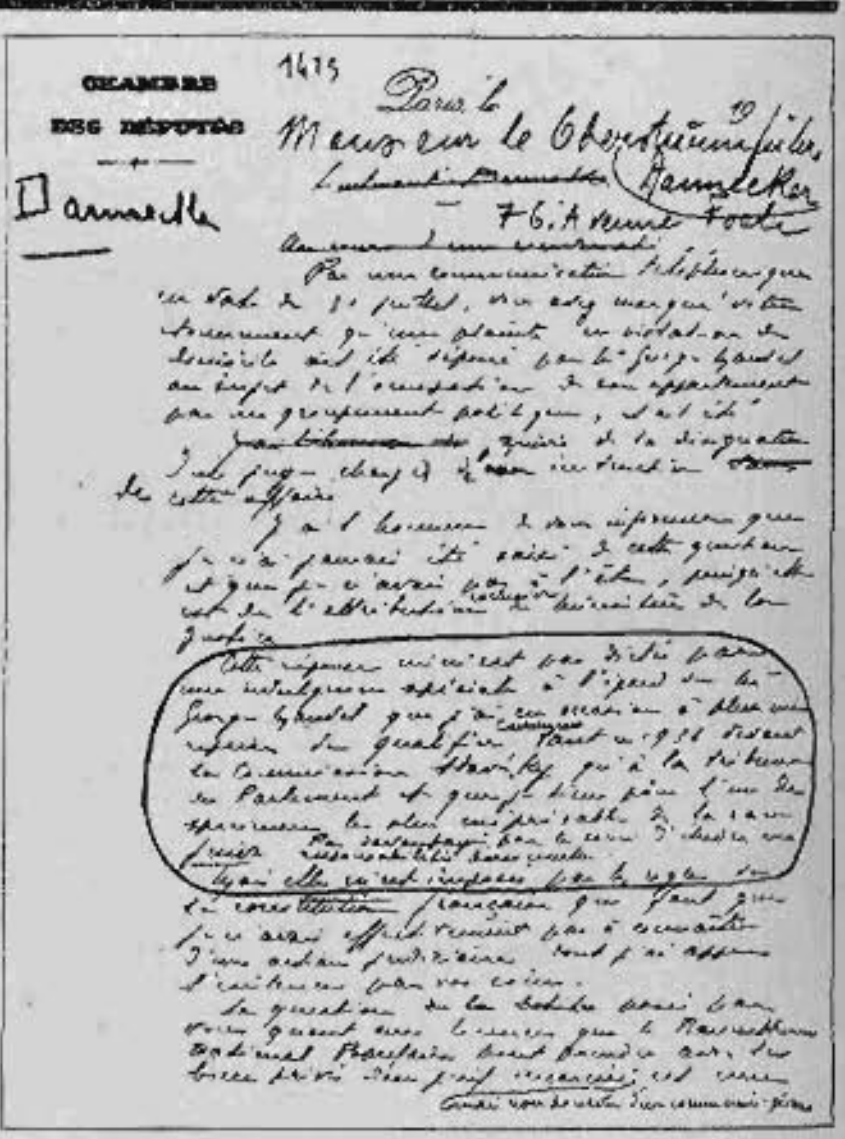 CHAMBRE
DES DÉPUTÉS
1415
Paris, le 19
Monsieur le Oberstürmführer
Lieutenant Dannecker
76, Avenue Foch
Dannecker
Au cours d'une
Par une communication téléphonique
en date du 31 juillet, vous avez marqué votre
étonnement qu'une plainte en violation de
domicile ait été déposé par le Georges Mandel
au sujet de l'occupation de son appartement
par un groupement politique, et ait été
suivie de la désignation
d'un juge chargé de instruction
de cette affaire
J'ai l'honneur de vous informer que
je n'ai jamais été saisi de cette question
et que je n'avais pas à l'être, puisqu'elle
est de l'attribution exclusive du ministère de la
Justice
Cette réponse m'est pas dictée par
une indulgence spéciale à l'égard du
Georges Mandel que j'ai eu occasion à plusieurs
reprises de qualifier tant en devant
la Commission Stavisky qu'à la tribune
du Parlement et que je tiens pour l'un des
spécimens les plus méprisable de la race
juive. Pas davantage par le souci d'éluder une
responsabilité
Mais elle m'est imposée par la règle de
la constitution française qui fait que
je n'avais effectivement pas à connaître
d'une action judiciaire dont j'ai appris
l'existence par vos soins.
La question de la posée par
vous quant aux que le Rassemblement
National Populaire peut prendre sur des
biens privés d'un juif est